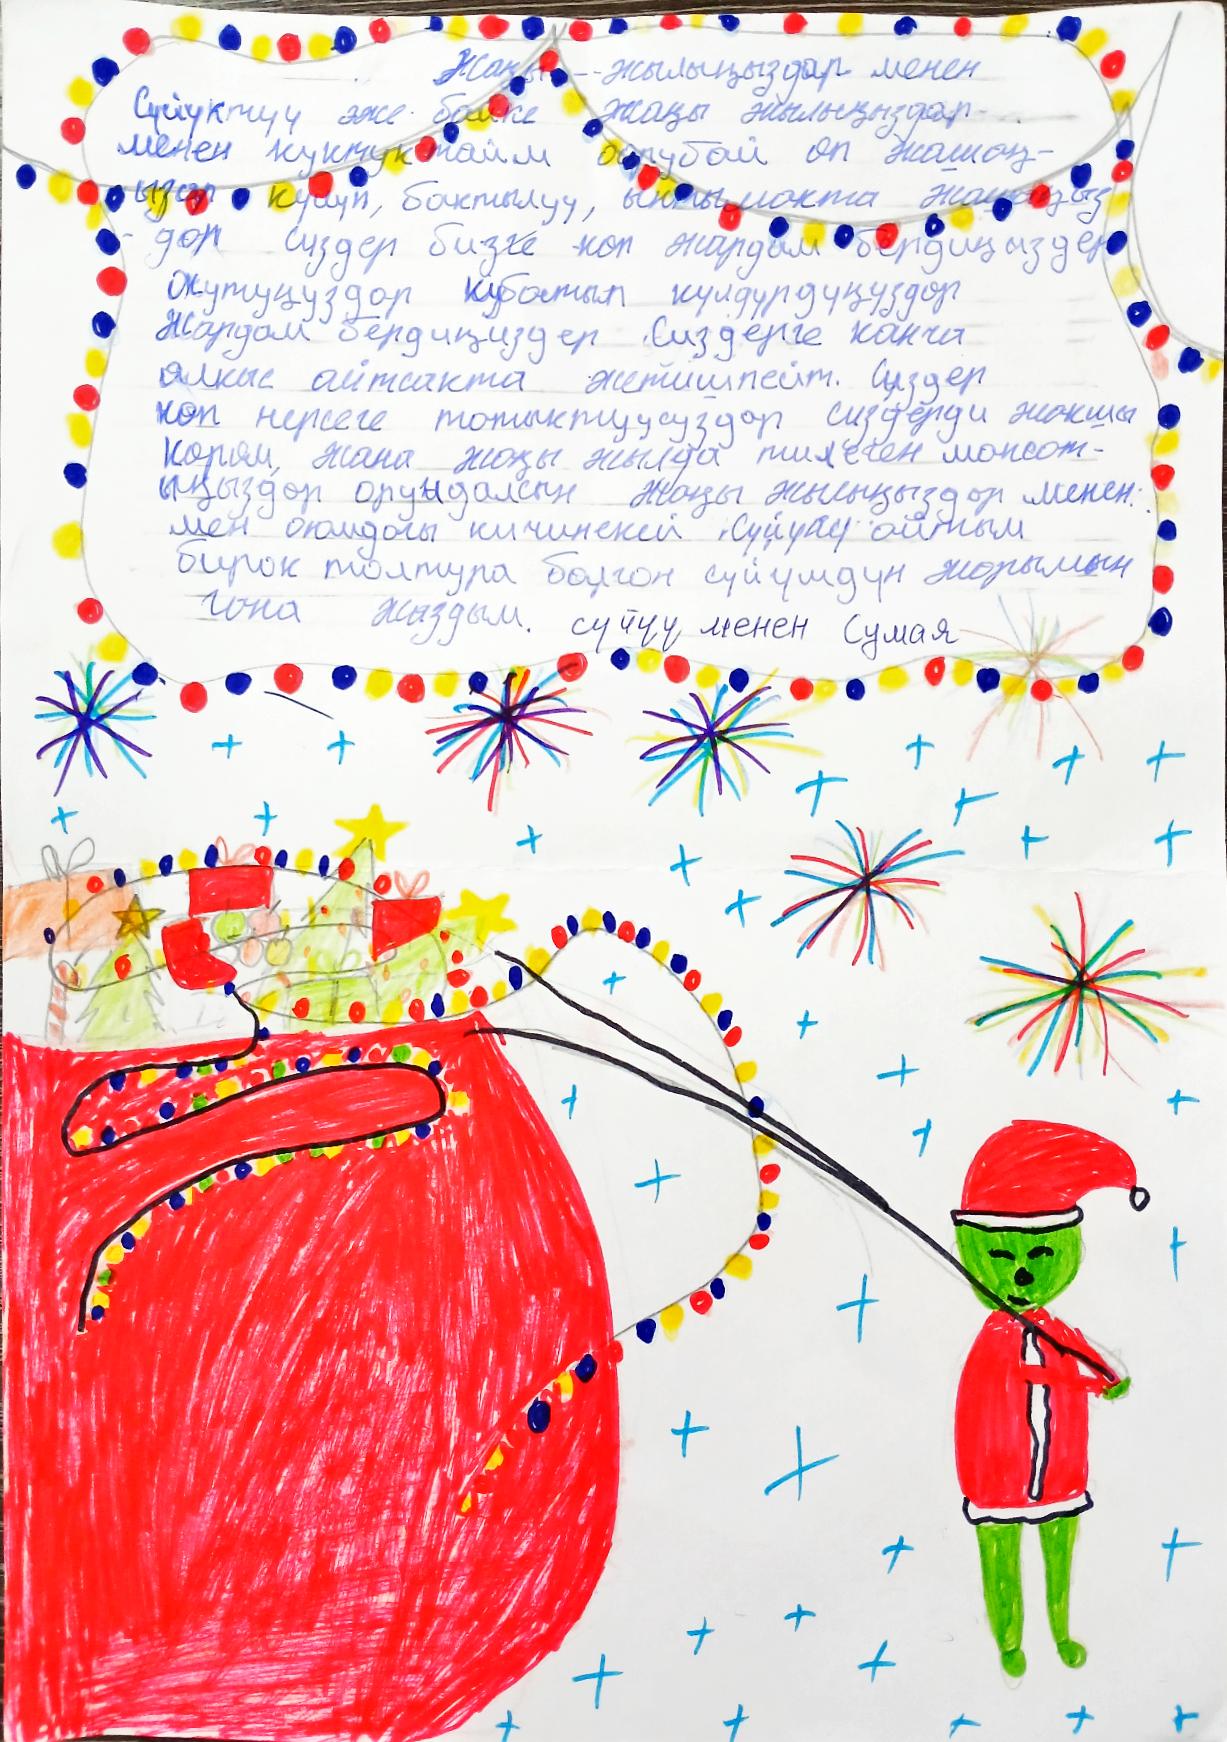 Жаңы - жылыңыздар менен
Сүйүктүү эже байке жаңы жылыңыздар-
менен куктуктайм оорубай оп жашаң-
ыздар күлүп, бактылуу, ынтымакта жашаңыз
дар сиздер бизге коп жардам бердиңиздер
окутуңуздар кубатып күлдүрдүңүздөр
Жардам бердиңиздер. Сиздерге канча
алкыс айтсакта жетишпейт. Сиздер
коп нерсеге татыктуусуздар сиздерди жакшы
кором, жана жаңы жылда тилеген монсат-
ыңыздар орундалсын жаңы жылыңыздар менен.
мен оюмдагы кичинекей сүйүү айтым
бирок толтура болгон сүйүмдүн жарымын
гана жаздым. сүйүү менен Сумая